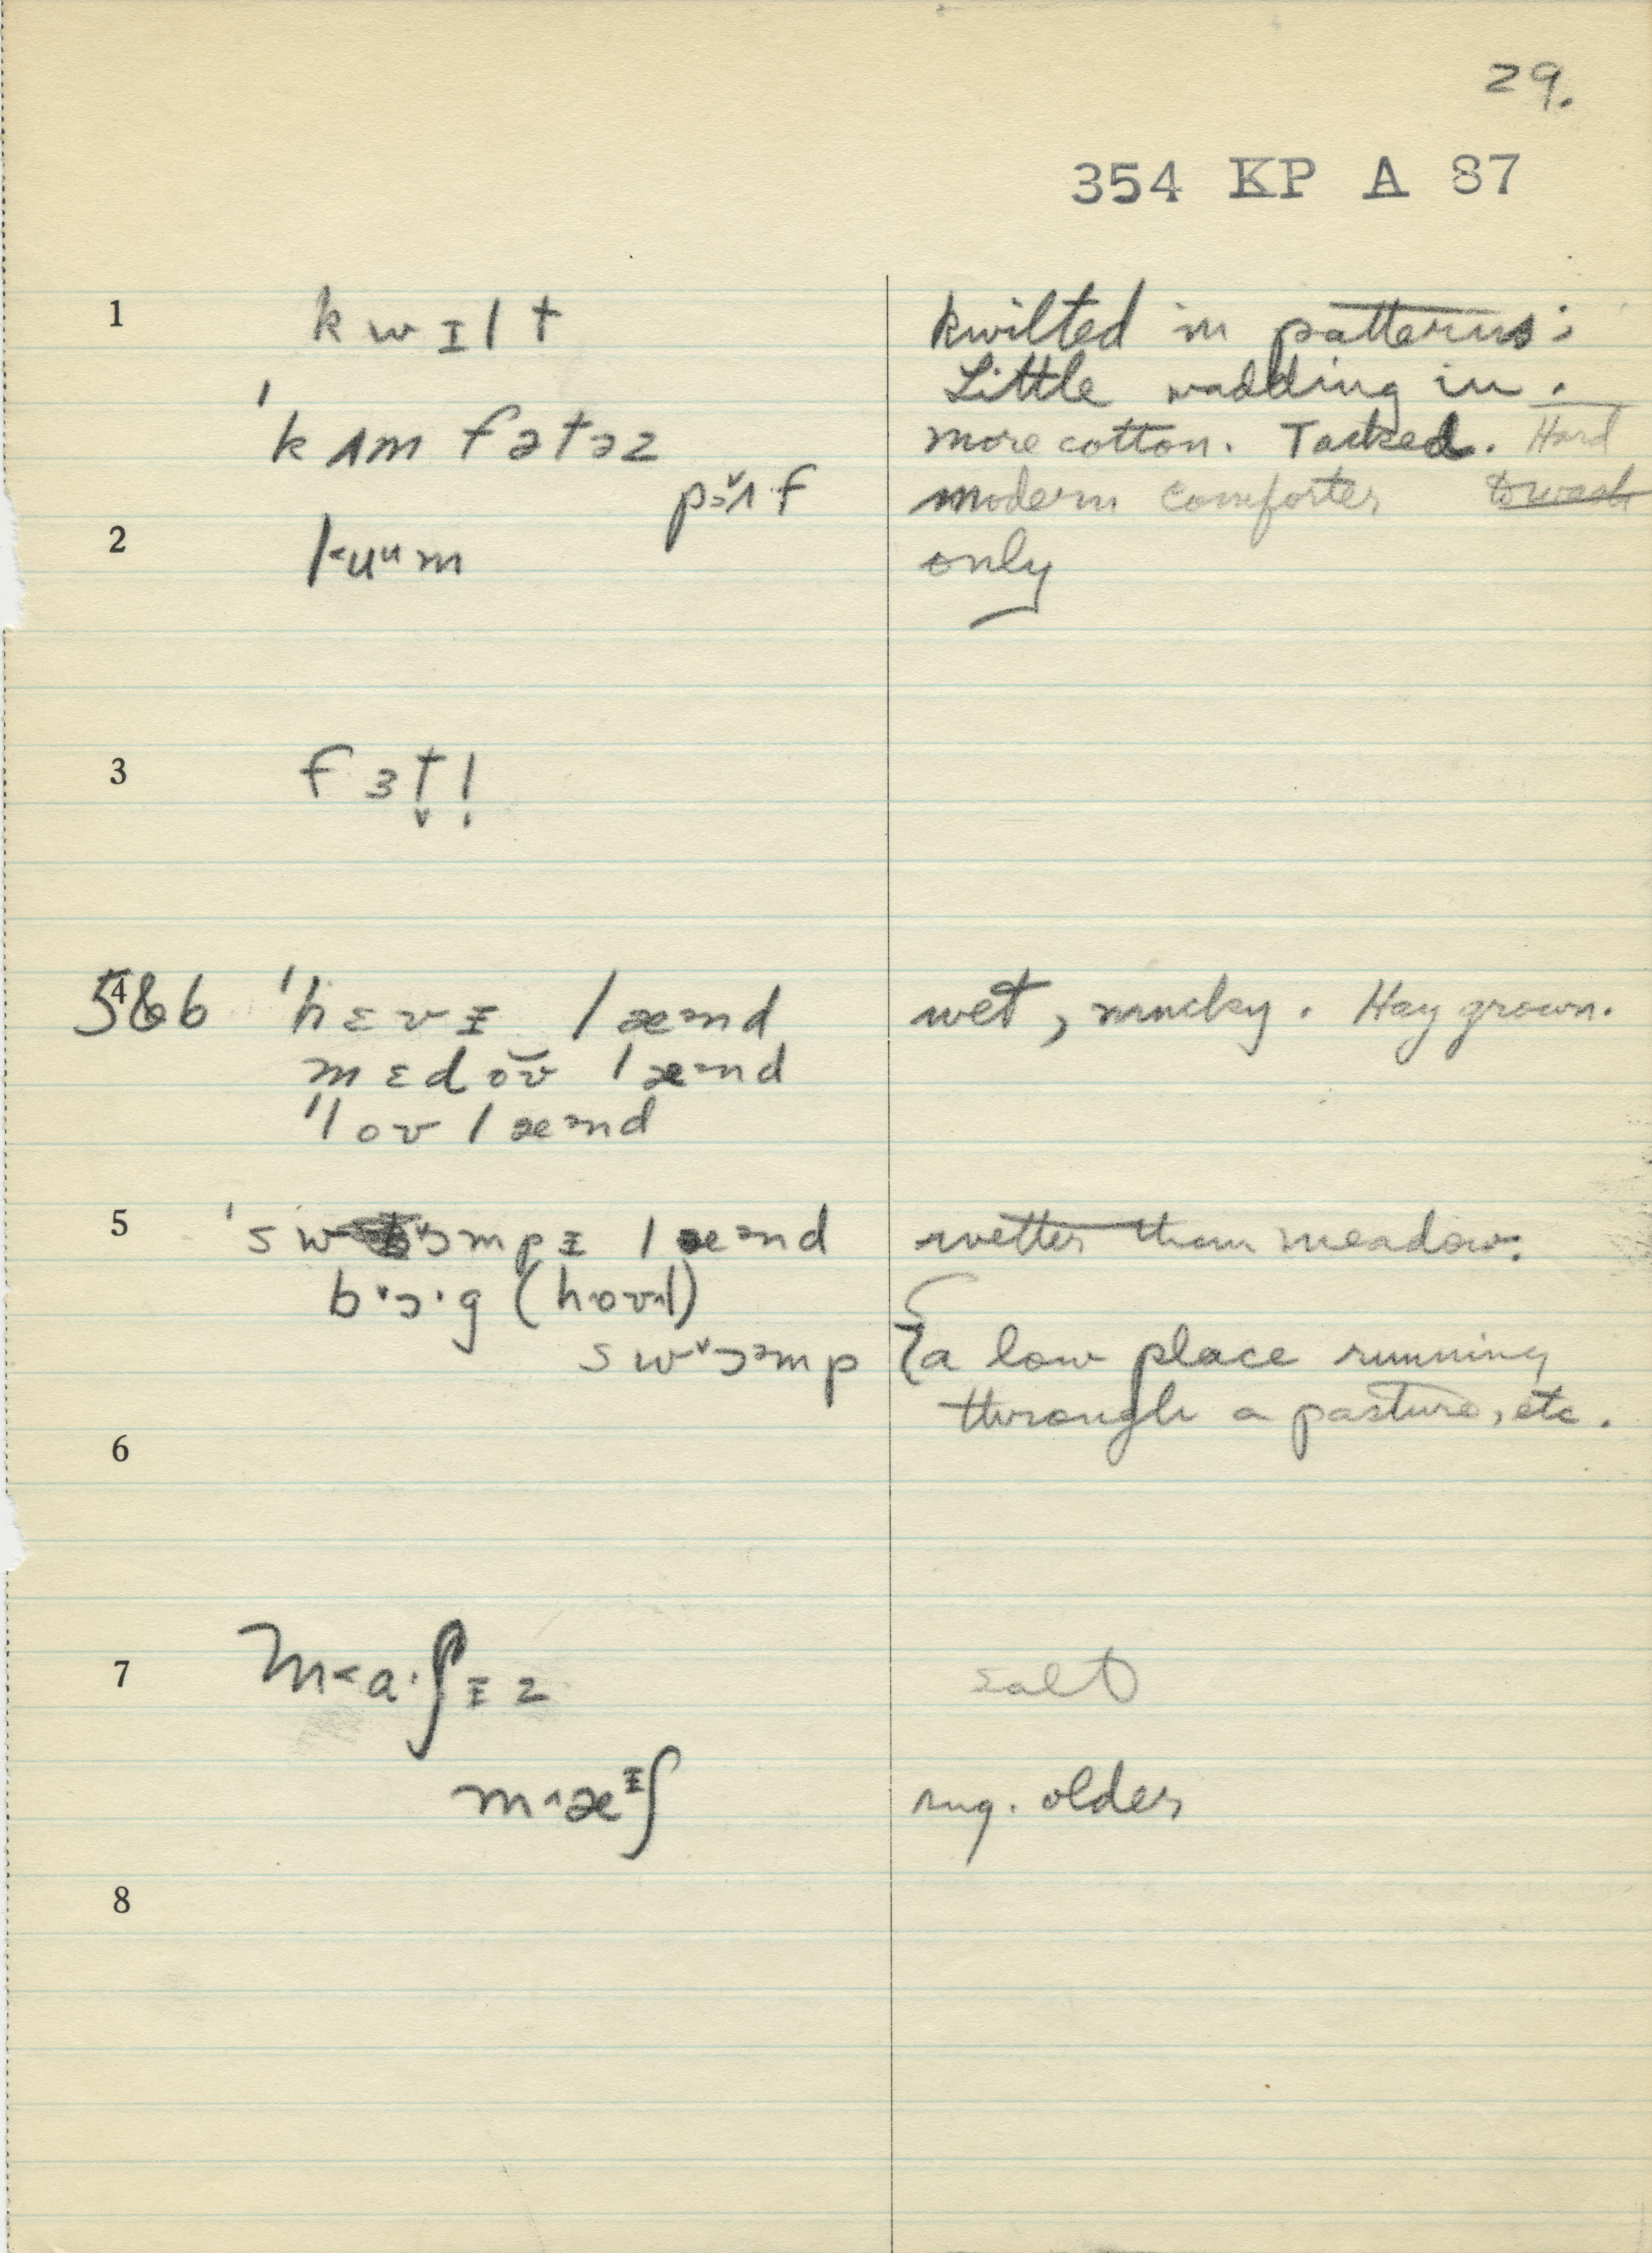 29.
354 KP A 87
1 kwɪlt kwilted in patterns;
Little wadding in.
ˈkʌmfətəz more cotton. Tacked. Hard
pɔˇʌf modern comforter to wash
2 r<uᵘm only
3 fɜt̬l̩
5&6 4 ˈhɛvɪ̵ læᵊnd wet, mucky. Hay grown.
mɛdŏ̆ʊ læᵊnd
ˈloʊlæᵊnd
5 ˈswˇɔmpɪ̵ læᵊnd wetter than meadow.
bˇɔ·g (hoʊl)
swˇɔᵊmp {a low place running
through a pasture, etc.
6
7 m<a·ʃɪ̵z salt
m^æᶦ̵ʃ sug. older
8